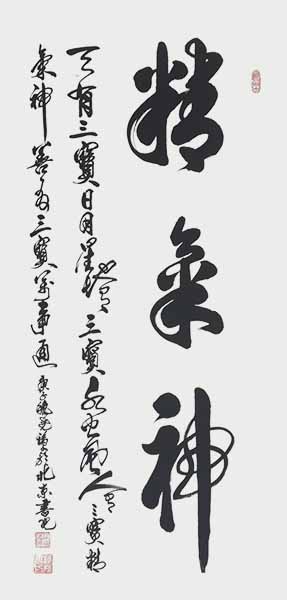 精氣神
天有三寶日月星地有三寶水火風人有三寶精
氣神善三寶萬事通 庚子於北京書